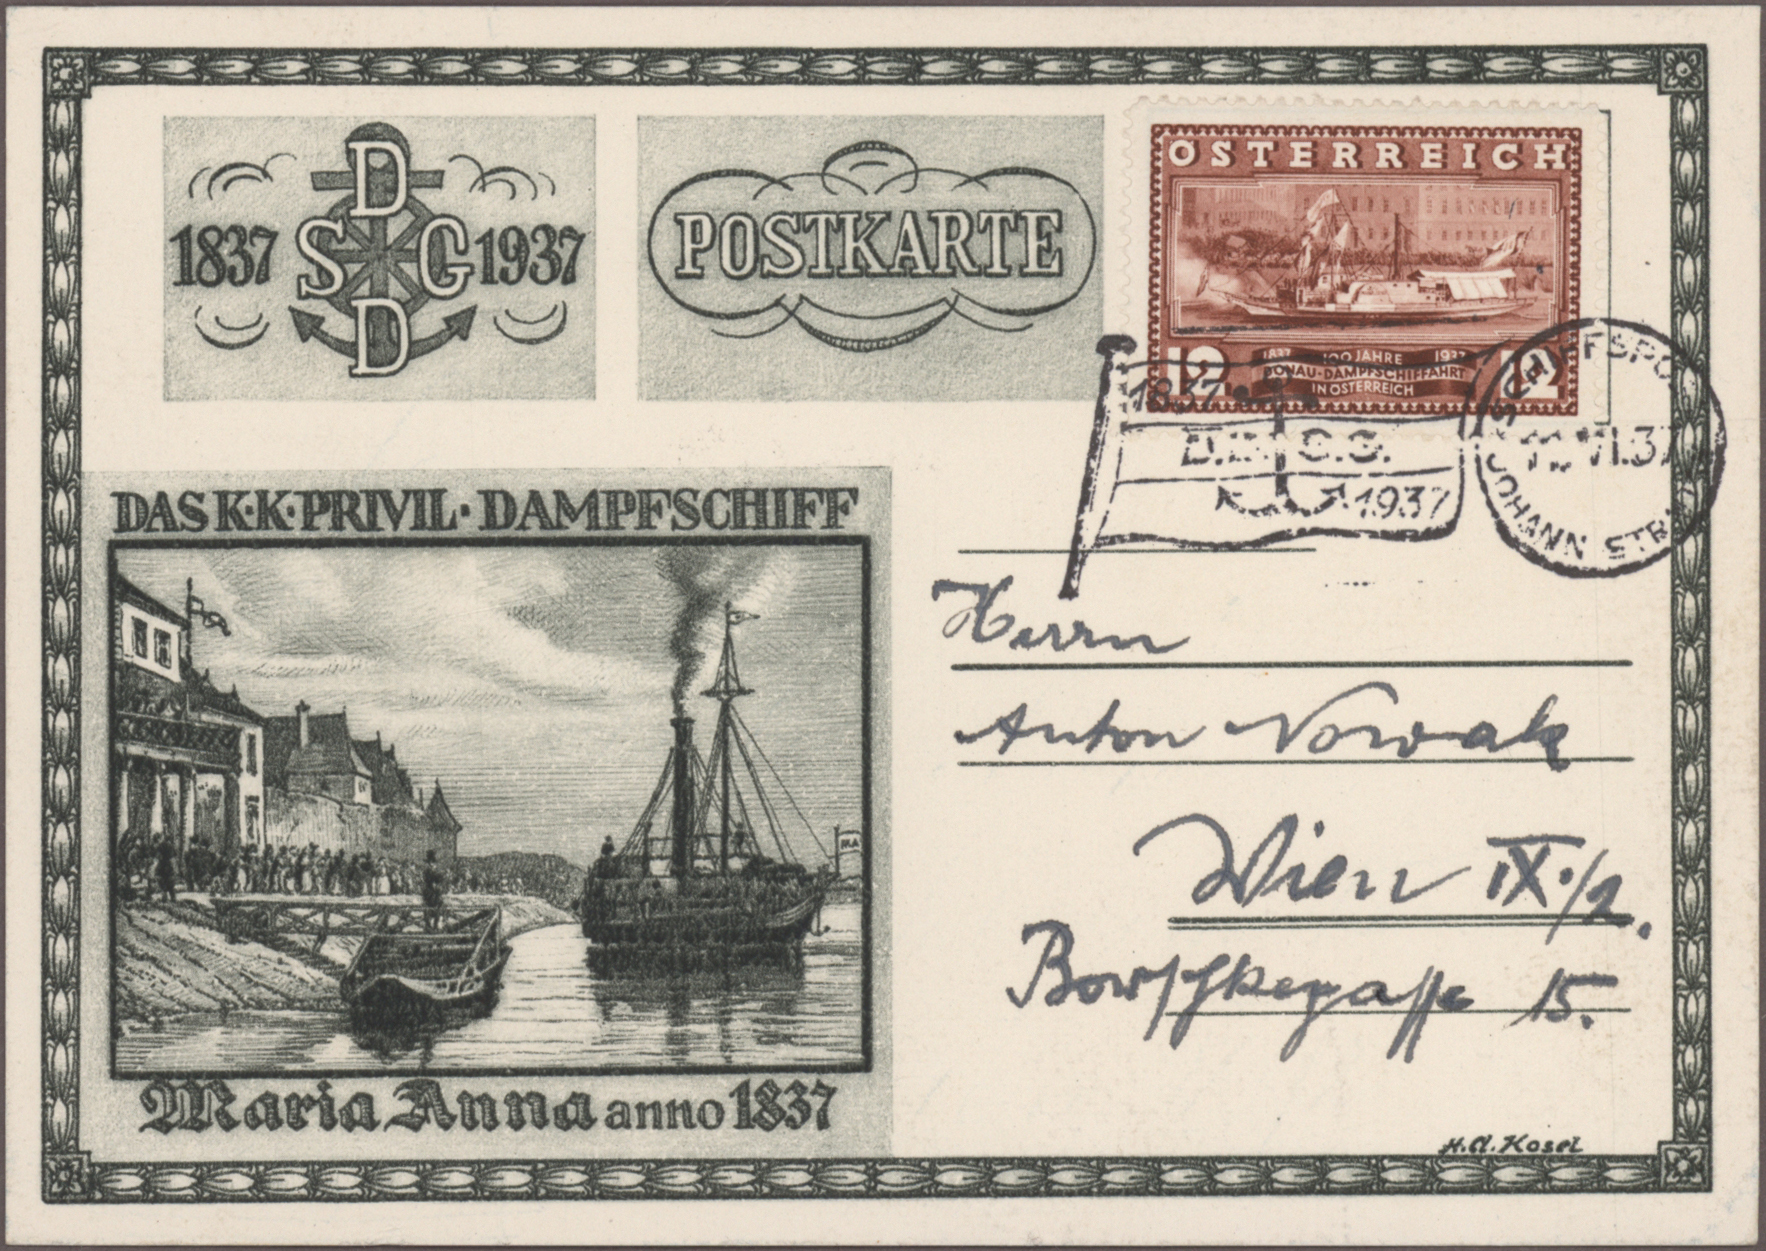 D
1837 S G 1937
D
POSTKARTE
ÖSTERREICH
12 12
1837 100 JAHRE 1937
DONAU-DAMPFSCHIFFAHRT
IN ÖSTERREICH
1837
D.D.S.G.
1937
SCHIFFSPO
VI.37
JOHANN STR
DAS K·K·PRIVIL·DAMPFSCHIFF
MA
Maria Anna anno 1837
Herrn
Anton Nowak
Wien IX./2.
15.
H.A.Kosel